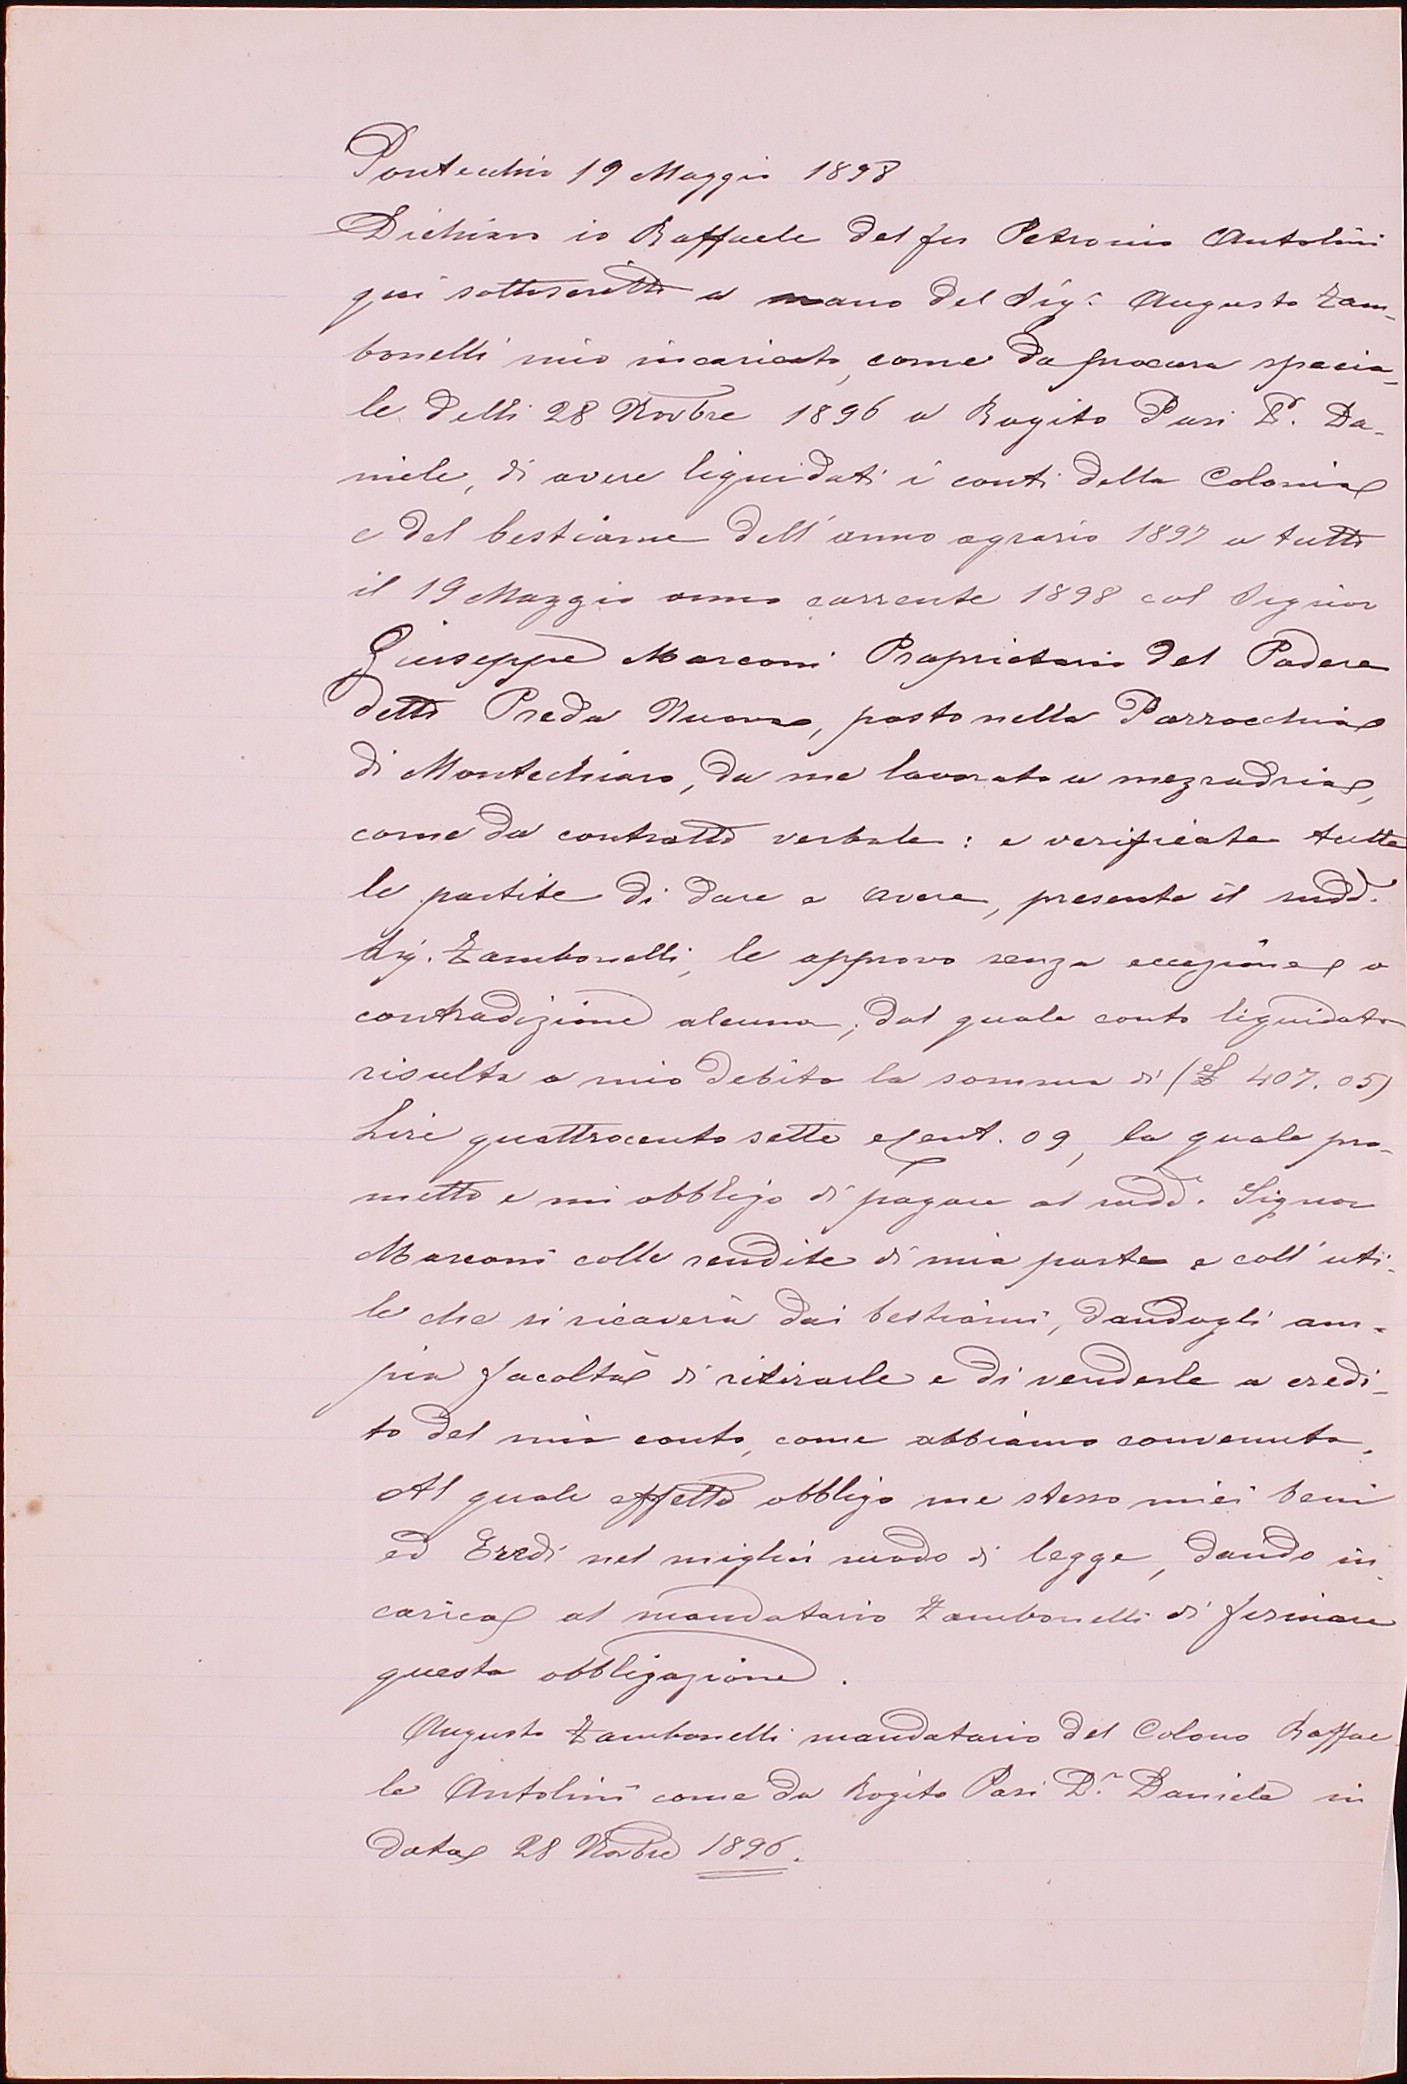 Pontecchio 19 Maggio 1898
Dichiaro io Raffaele del fu Petronio Antolini
qui sottoscritto a mano del Sigr. Augusto Zam-
bonelli mio incaricato, come da procura specia-
le delli 28 Novbre 1896 a Rogito Pasi Dr. Da-
niele, di avere liquidati i conti della Colonia
e del bestiame dell'anno agrario 1897 a tutto
il 19 Maggio anno corrente 1898 col Signor
Giuseppe Marconi Proprietario del Podere
detto Preda Nuova, posto nella Parrocchia
di Montechiaro, da me lavorato a mezzadria,
come da contratto verbale: e verificate tutte
le partite di dare e avere, presente il sudd.
Sig. Zambonelli, le approvo senza eccezione o
contradizione alcuna; dal quale conto liquidato
risulta a mio debito la somma di (£ 407.05)
Lire quattrocento sette e cent. 09, la quale pro-
metto e mi obbligo di pagare al sudd. Signor
Marconi colle rendite di mia parte e coll'uti-
le che si ricaverà dai bestiami, dandogli am-
pia facoltà di ritirarle e di venderle a credi-
to del mio conto, come abbiamo convenuto.
Al quale effetto obbligo me stesso miei beni
ed Eredi nel miglior modo di legge, dando in-
carico al mandatario Zambonelli di firmare
questa obbligazione.
Augusto Zambonelli mandatario del Colono Raffae-
le Antolini come da Rogito Pasi Dr. Daniele in
data 28 Novbre 1896.